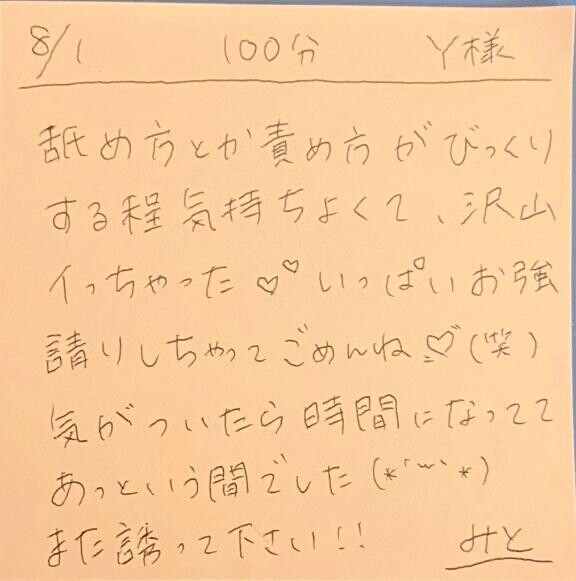 8/1 100分 Y様
舐め方とか責め方がびっくり
する程気持ちよくて、沢山
イっちゃった♡♡いっぱいお強
請りしちゃってごめんね♡(笑)
気がついたら時間になってて
あっという間でした(*´꒳`*)
また誘って下さい!! みと